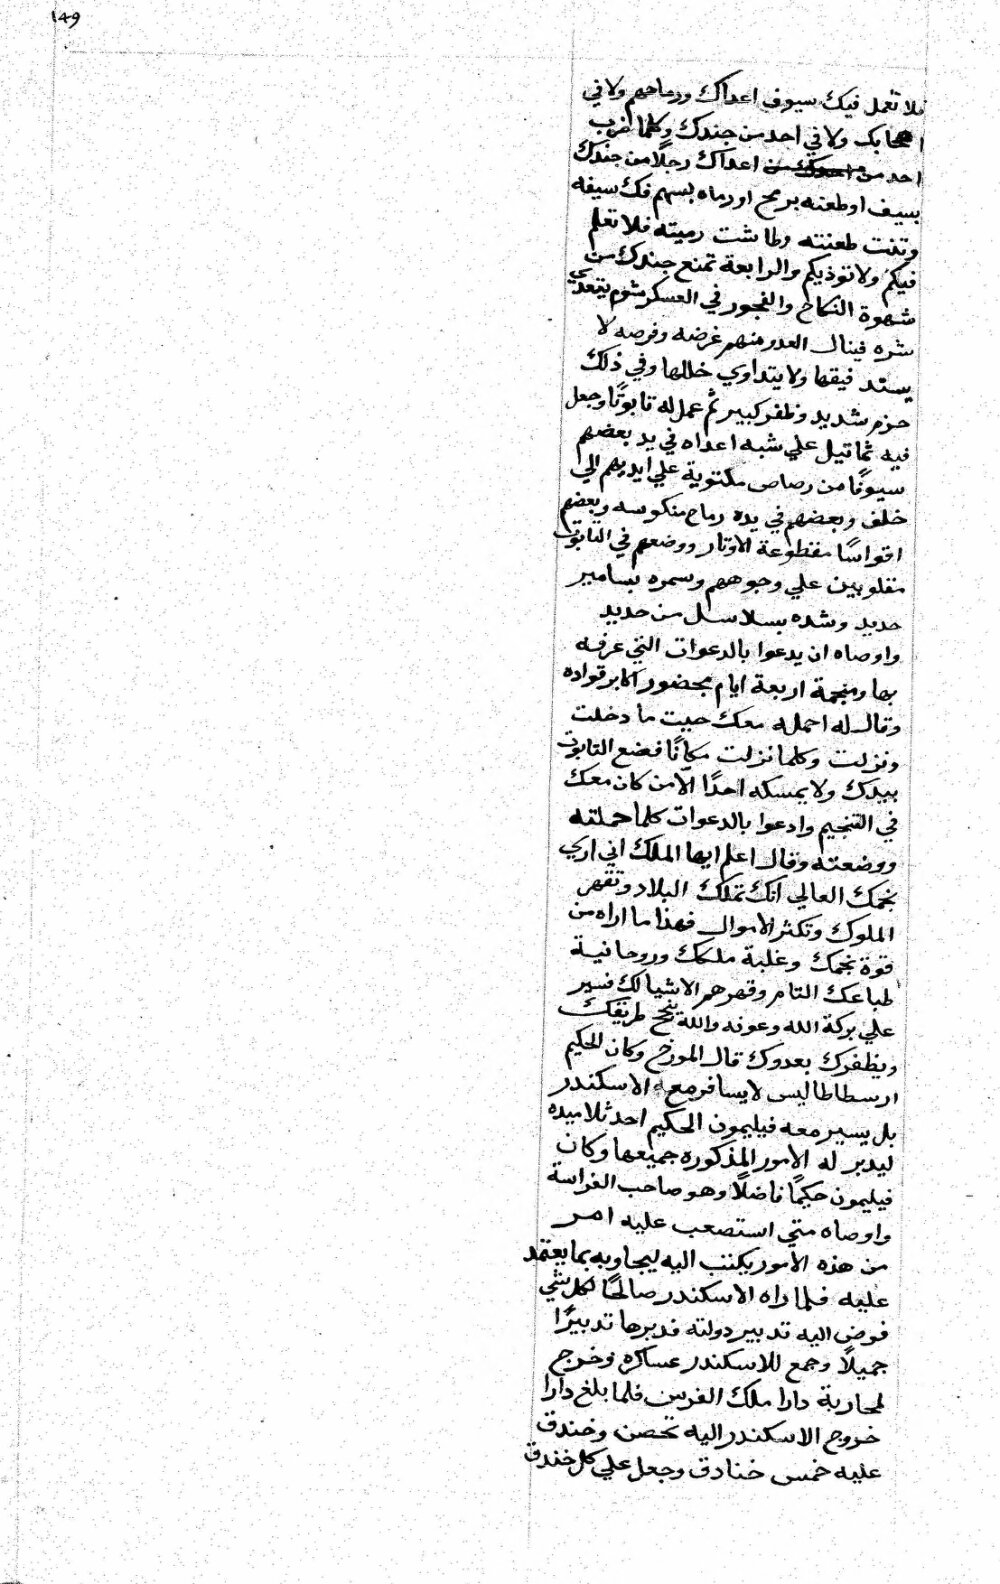 ١٤٩
فلا تعمل فيك سيوف اعداك ورماحهم ولا في
اصحابك ولا في احد من جندك وكلما ضرب
احد من اعداك رجلًا من جندك
بسيف او طعنه برمح او رماه بسهم فك سيفه
وتنت طعنته وطاشت رميته فلا تعلم
فيكم ولا توذيكم والرابعة تمنع جندك من
شهوة النكاح والفجور في العسكر شوم يتعدي
شره فينال العدو منهم غرضه وفرصه لا
يسند فيقها ولا يتداوي خللها وفي ذلك
حزم شديد وظفر كبير ثم عمل له تابوتًا وجعل
فيه تماثيل علي شبه اعداه في يد بعضهم
سيوفًا من رصاص ملتوية علي ايديهم الي
خلف وبعضهم في يده رماح منكوسه وبعضهم
اقواسًا مقطوعة الاوتار ووضعهم في التابوت
مقلوبين علي وجوههم وسمره بسامير
حديد وشده بسلاسل من حديد
واوصاه ان يدعوا بالدعوات التي عرفه
بها ومنجمة اربعة ايام بحضور اكابر قواده
وقال له احمله معك حيت ما دخلت
ونزلت وكلما نزلت مكانًا فضع التابوت
بيدك ولا يمسكه احدًا الّا من كان معك
في التنجيم وادعوا بالدعوات كلما حملته
ووضعته وقال اعلم ايها الملك اني اري
نجمك العالي انك تملك البلاد وتقهر
الملوك وتكثر الاموال فهذا ما اراه من
قوة نجمك وغلبة ملكك وروحانية
طباعك التام وقهرهم الاشيا لك فسير
علي بركة الله وعونه والله ينجح طريقك
ويظفرك بعدوك قال المورخ وكان الحكيم
ارسطاطاليس لا يسافر مع الاسكندر
بل يسير معه فيليمون الحكيم احد تلاميده
ليدبر له الامور المذكوره جميعها وكان
فيليمون حكيمًا فاضلًا وهو صاحب الفراسة
واوصاه متي استصعب عليه امر
من هذه الامور يكتب اليه ليجاوبه بما يعتمد
عليه فلما راه الاسكندر صالحًا لكل شي
فوض اليه تدبير دولته فدبرها تدبيرًا
جميلًا وجمع للاسكندر عساكره وخرج
لمحاربة دارا ملك الفرس فلما بلغ دارا
خروج الاسكندر اليه تحصن وخندق
عليه خمس خنادق وجعل علي كل خندق